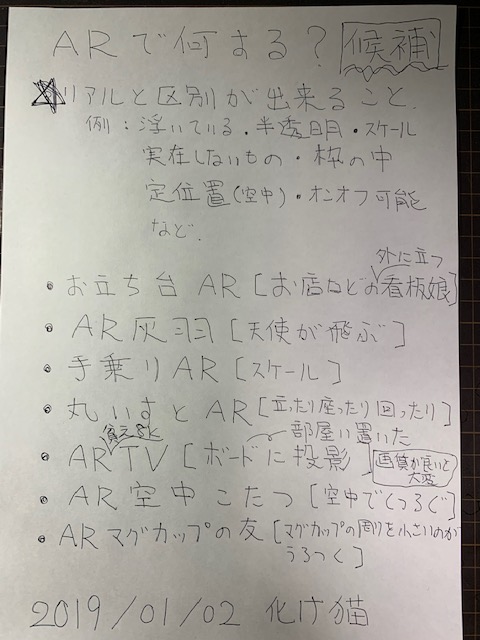 ARで何する? 候補
☆リアルと区別が出来ること.
例:浮いている・半透明・スケール
実在しないもの・枠の中
定位置(空中)・オンオフ可能
など.
外に立つ
・お立ち台AR[お店などの看板娘]
・AR灰羽[天使が飛ぶ]
・手乗りAR[スケール]
・丸いすとAR[立ったり座ったり回ったり]
部屋に置いた
・ARTV[ボードに投影] 画質が良いと
大変
・AR空中こたつ[空中でくつろぐ]
・ARマグカップの友[マグカップの周りを小さいのが
うろつく]
2019/01/02 化け猫